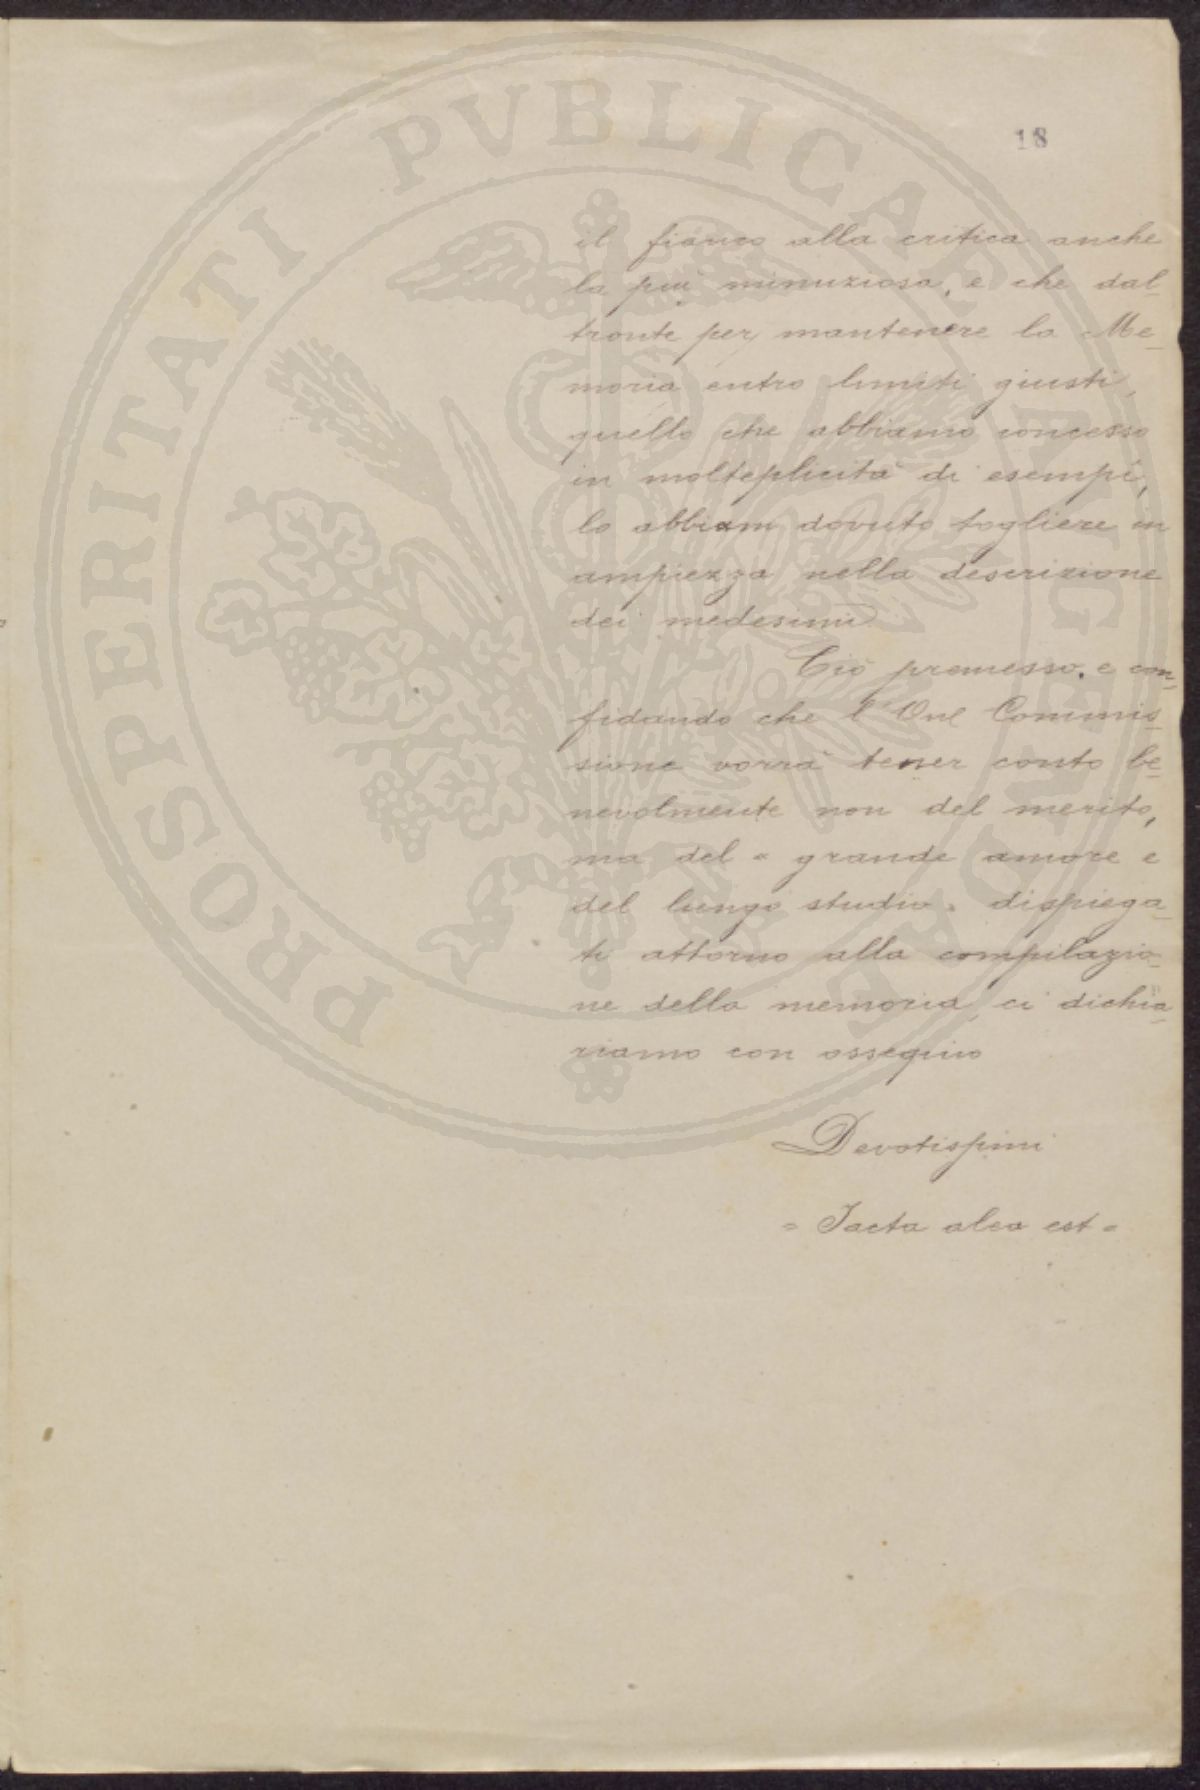 18
il fianco alla critica anche
la più minuziosa, e che dal-
tronte per mantenere la Me-
moria entro limiti giusti,
quello che abbiamo concesso
in molteplicità di esempi,
lo abbiam dovuto togliere in
ampiezza nella descrizione
dei medesimi.
Ciò premesso, e con-
fidando che l'Onl Commis-
sione vorrà tener conto be-
nevolmente non del merito,
ma del " grande amore e
del lungo studio " dispiega-
ti attorno alla compilazio-
ne della memoria, ci dichia-
riamo con ossequio
Devotissimi
" Iacta alea est "
PROSPERITATI PVBLICAE AVGENDAE